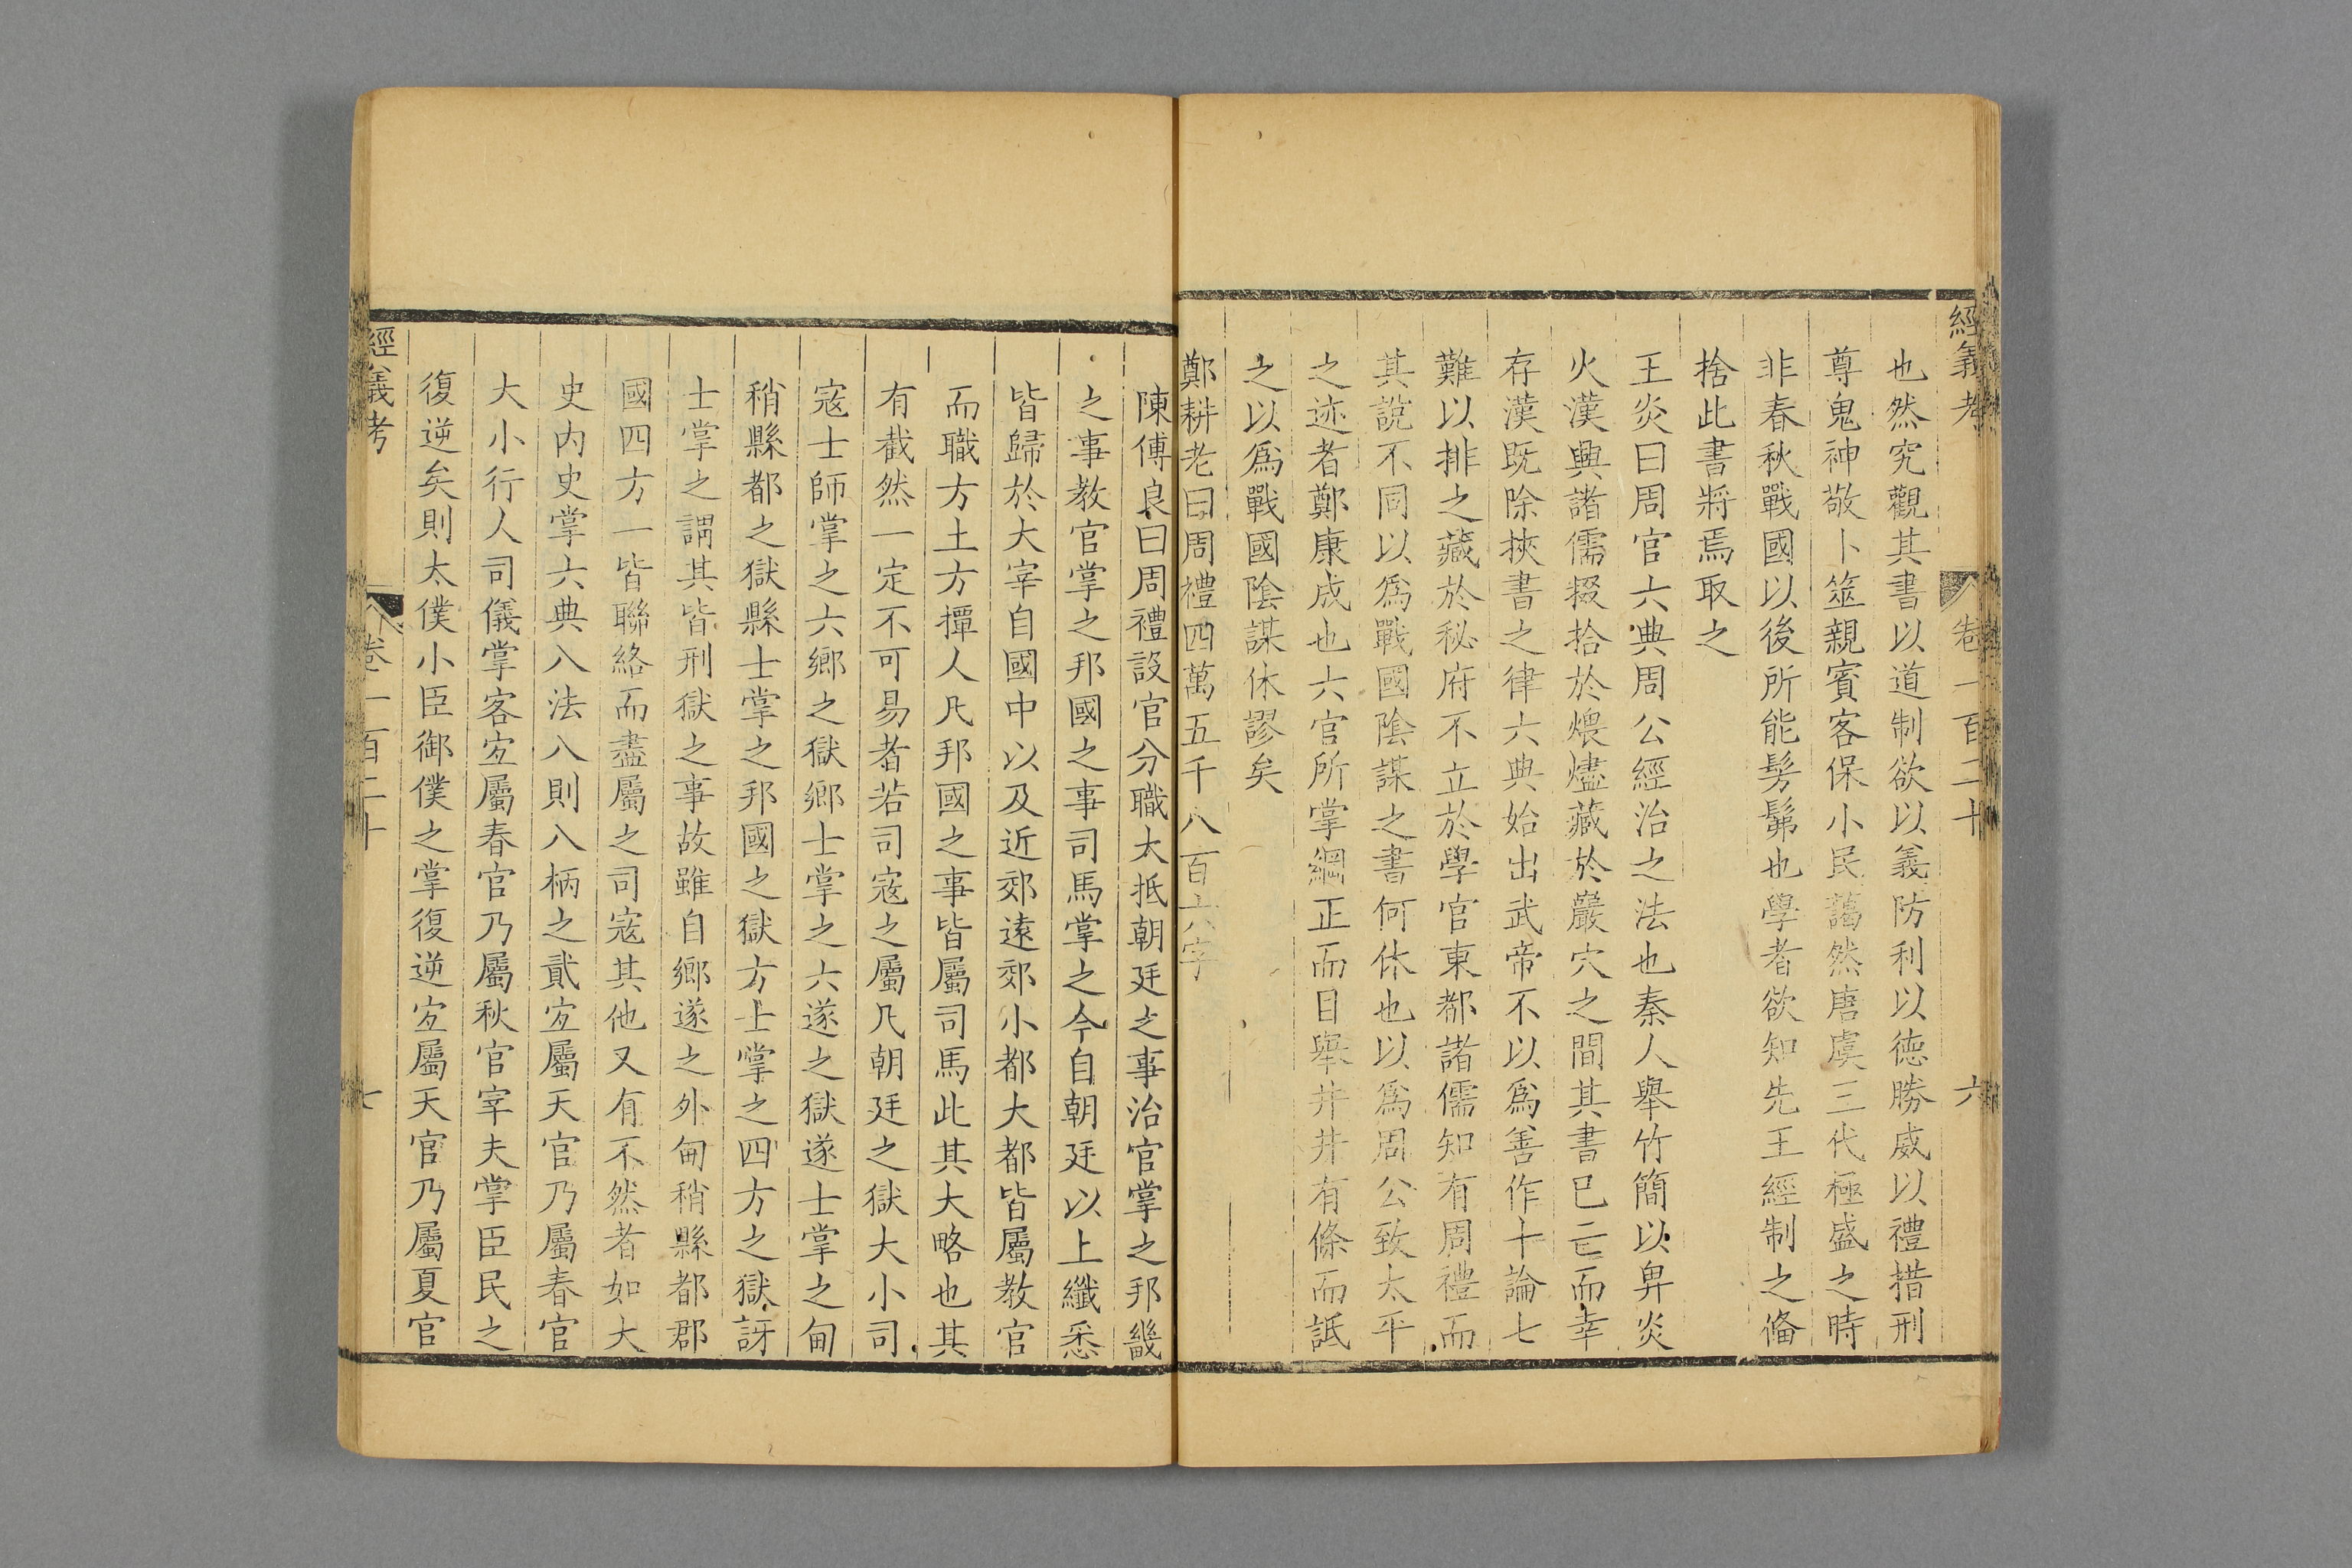 經義考 卷一百二十 六
也然究觀其書以道制欲以義防利以德勝威以禮措刑
尊鬼神敬卜筮親賓客保小民藹然唐虞三代極盛之時
非春秋戰國以後所能髣髴也學者欲知先王經制之備
捨此書將焉取之
王炎曰周官六典周公經治之法也秦人舉竹簡以畀炎
火漢興諸儒掇拾於煨燼藏於巖穴之間其書已亡而幸
存漢既除挾書之律六典始出武帝不以爲善作十論七
難以排之藏於秘府不立於學官東都諸儒知有周禮而
其說不同以爲戰國陰謀之書何休也以爲周公致太平
之迹者鄭康成也六官所掌綱正而目舉井井有條而詆
之以爲戰國陰謀休謬矣
鄭耕老曰周禮四萬五千八百六字
陳傅良曰周禮設官分職太抵朝廷之事治官掌之邦畿
之事教官掌之邦國之事司馬掌之今自朝廷以上纖悉
皆歸於大宰自國中以及近郊遠郊小都大都皆屬教官
而職方土方撢人凡邦國之事皆屬司馬此其大略也其
有截然一定不可易者若司寇之屬凡朝廷之獄大小司
寇士師掌之六鄉之獄鄉士掌之六遂之獄遂士掌之甸
稍縣都之獄縣士掌之邦國之獄方士掌之四方之獄訝
士掌之謂其皆刑獄之事故雖自鄉遂之外甸稍縣都郡
國四方一皆聯絡而盡屬之司寇其他又有不然者如大
史内史掌六典八法八則八柄之貳宐屬天官乃屬春官
大小行人司儀掌客宐屬春官乃屬秋官宰夫掌臣民之
復逆矣則太僕小臣御僕之掌復逆宐屬天官乃屬夏官
經義考 卷一百二十 七